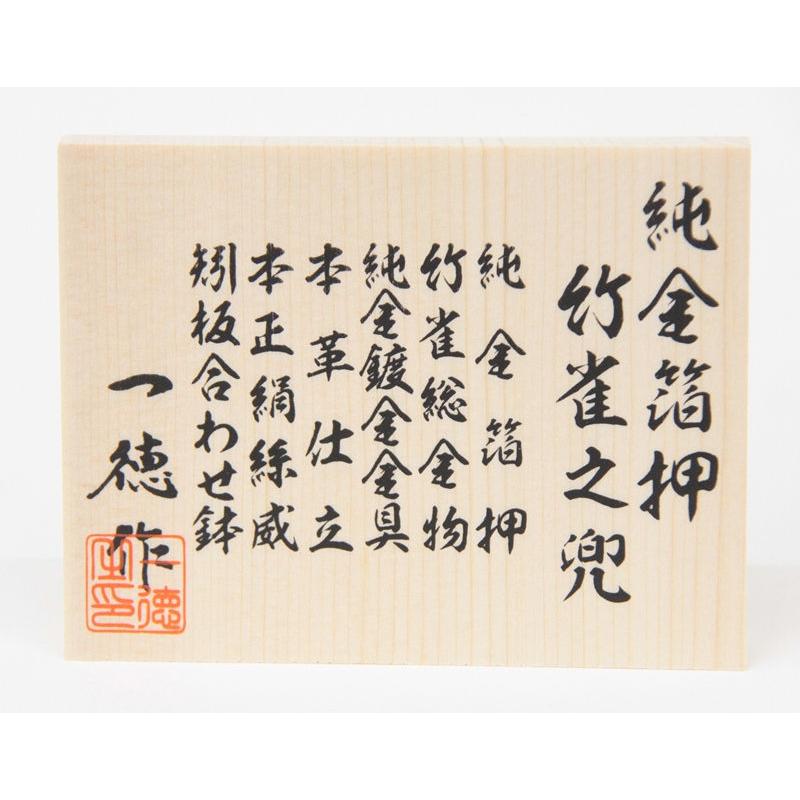 純金箔押
竹雀之兜
純金箔押
竹雀総金物
純金鍍金金具
本革仕立
本正絹絲威
矧板合わせ鉢
一徳作
一徳